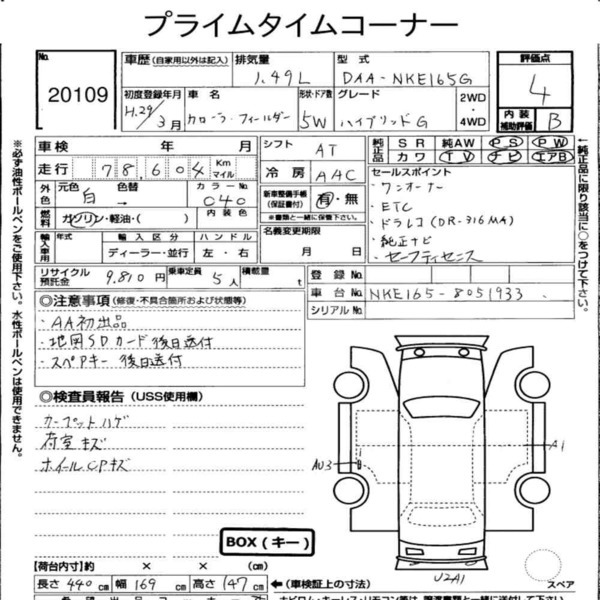 プライムタイムコーナー
No. 20109
車歴 (自家用以外は記入) 排気量 1.49L 型式 DAA-NKE165G 評価点 4
初度登録年月 H.29/3月 車名 カローラ・フィールダー 形状・ドア数 5W グレード ハイブリッドG 2WD・4WD 内装補助評価 B
車検 年 月 シフト AT 純正品 SR 純AW PS PW
カワ TV ナビ エアB
走行 78,604 Km マイル 冷房 AAC
外色 元色 白 → 色替 カラーNo. 040
燃料 ガソリン・軽油・( ) 内装色
新車整備手帳(保証書付) 有・無 ※書類と一緒に保管下さい。
輸入車用 年式 輸入区分 ディーラー・並行 ハンドル 左・右
名義変更期限 月 日
リサイクル預託金 9,810円 乗車定員 5人 積載量 t
セールスポイント
・ワンオーナー
・ETC
・ドラレコ (DR-316MA)
・純正ナビ
・セーフティセンス
登録No.
車台No. NKE165-8051933
シリアルNo.
◎注意事項 (修復・不具合箇所および状態等)
・AA初出品
・地図SDカード 後日送付
・スペアキー 後日送付
◎検査員報告 (USS使用欄)
カーペットハゲ
荷室キズ
ホイールCPキズ
BOX (キー)
AU3
A1
U2A1
スペア
【荷台内寸】約 × × (cm)
長さ 440cm 幅 169cm 高さ 147cm ←(車検証上の寸法)
※必ず油性ボールペンをご使用下さい。水性ボールペンは使用できません。
←純正品に限り該当に○をつけて下さい。